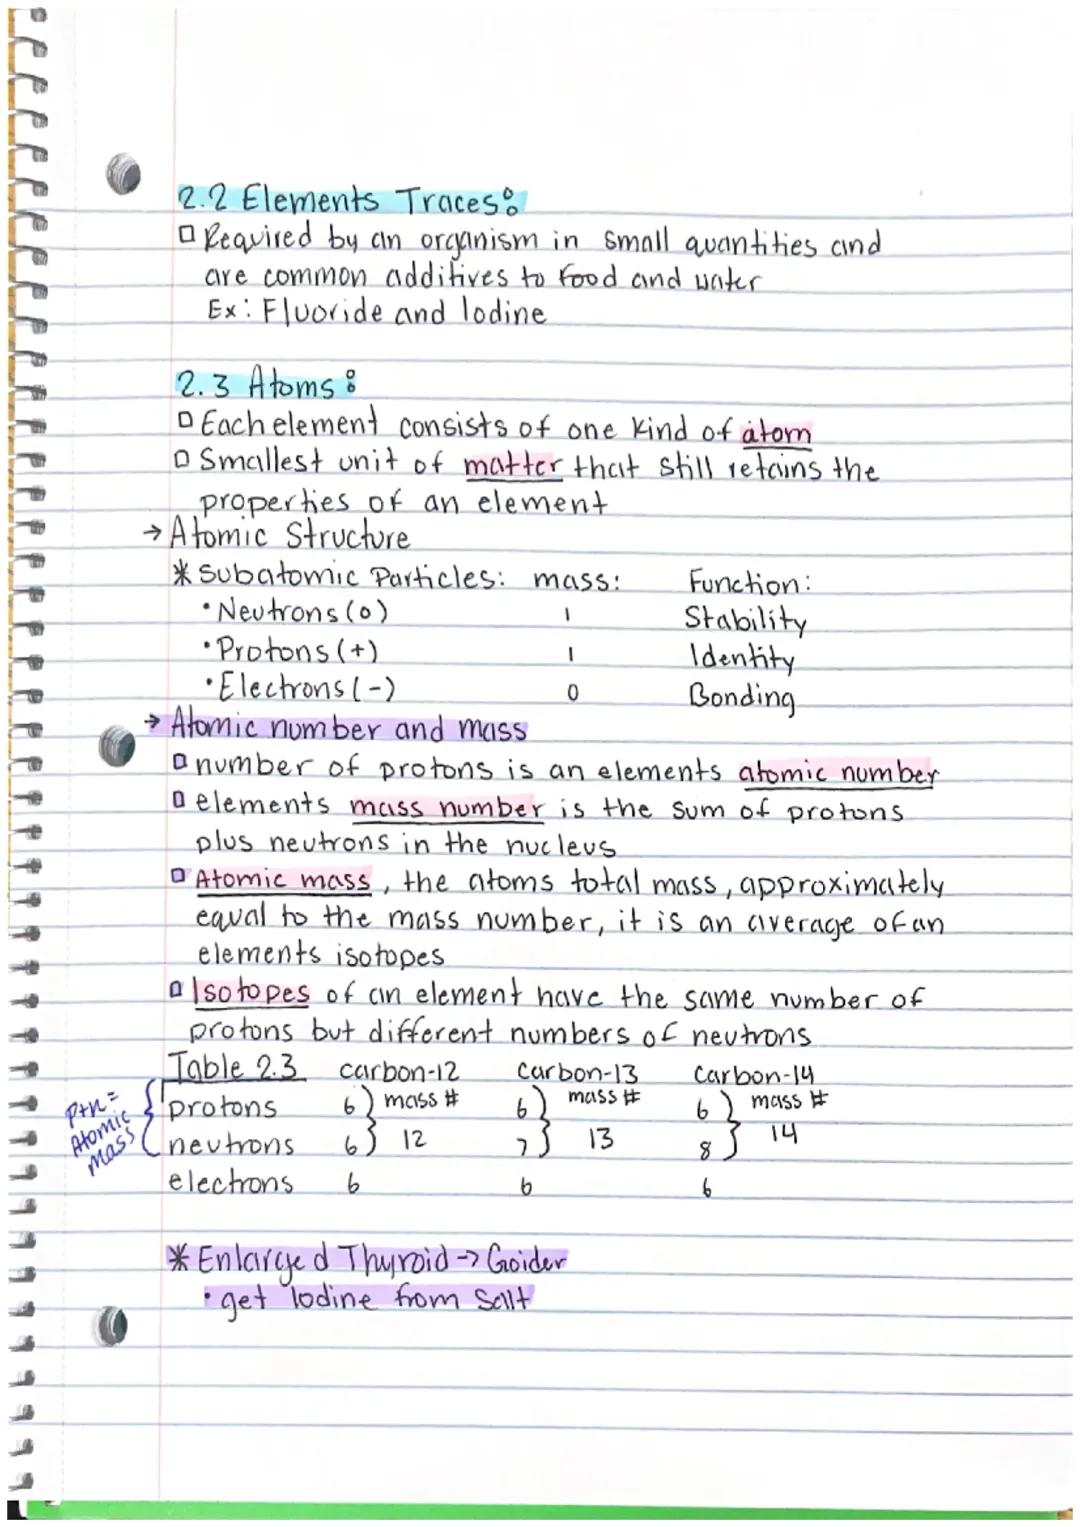 2.2 Elements Traces:
□ Required by an organism in small quantities and
are common additives to food and water
Ex: Fluoride and Iodine
2.3 Atoms:
□ Each element consists of one kind of atom
□ Smallest unit of matter that still retains the
properties of an element
→ Atomic Structure
* Subatomic Particles: mass: Function:
• Neutrons (0) 1 Stability
• Protons (+) 1 Identity
• Electrons (-) 0 Bonding
→ Atomic number and mass
□ number of protons is an elements atomic number
□ elements mass number is the sum of protons
plus neutrons in the nucleus
□ Atomic mass, the atoms total mass, approximately
equal to the mass number, it is an average of an
elements isotopes
□ Isotopes of an element have the same number of
protons but different numbers of neutrons
Table 2.3 carbon-12 carbon-13 carbon-14
p+n=
Atomic
mass
protons 6 mass # 6 mass # 6 mass #
neutrons 6 12 7 13 8 14
electrons 6 6 6
* Enlarged Thyroid → Goider
• get Iodine from Salt